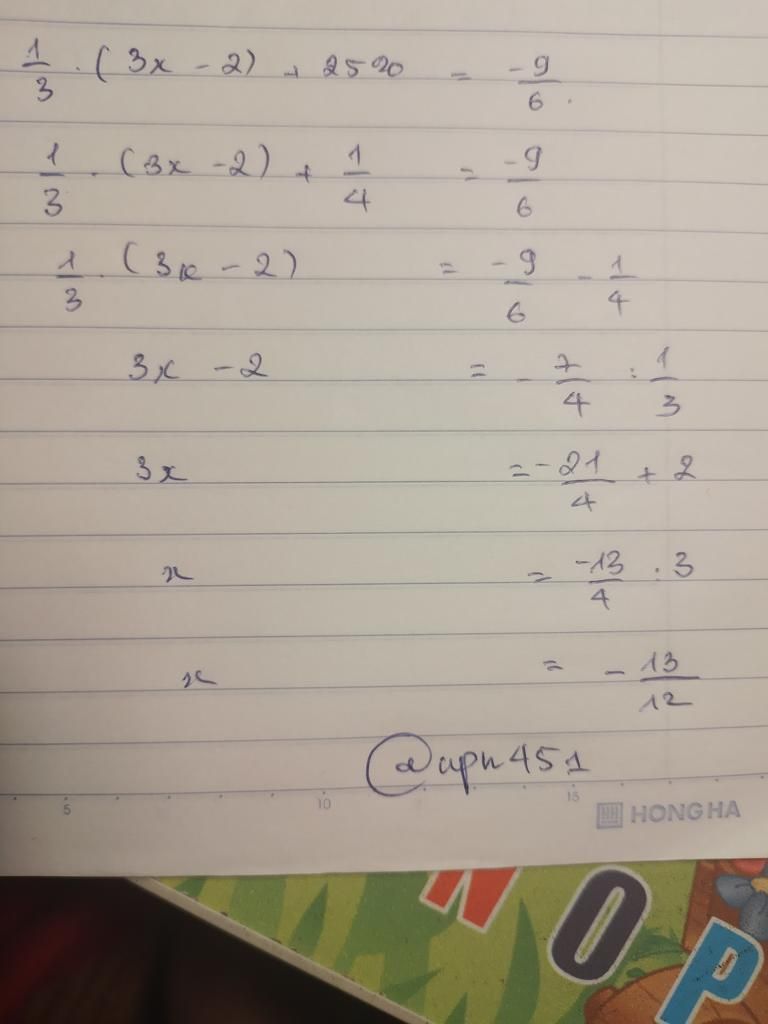 1/3 . (3x - 2) + 25% = -9/6.
1/3 . (3x - 2) + 1/4 = -9/6
1/3 . (3x - 2) = -9/6 - 1/4
3x - 2 = - 7/4 : 1/3
3x = -21/4 + 2
x = -13/4 : 3
x = - 13/12
@apn451
5 10 15
HONG HA
NOP